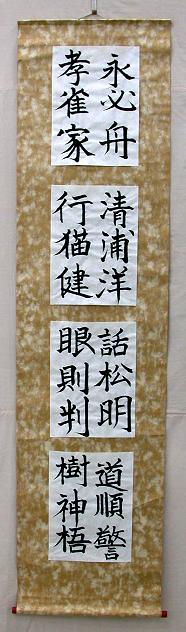 永必舟
孝雀家
清浦洋
行猫健
話松明
眼則判
道順警
樹神梧